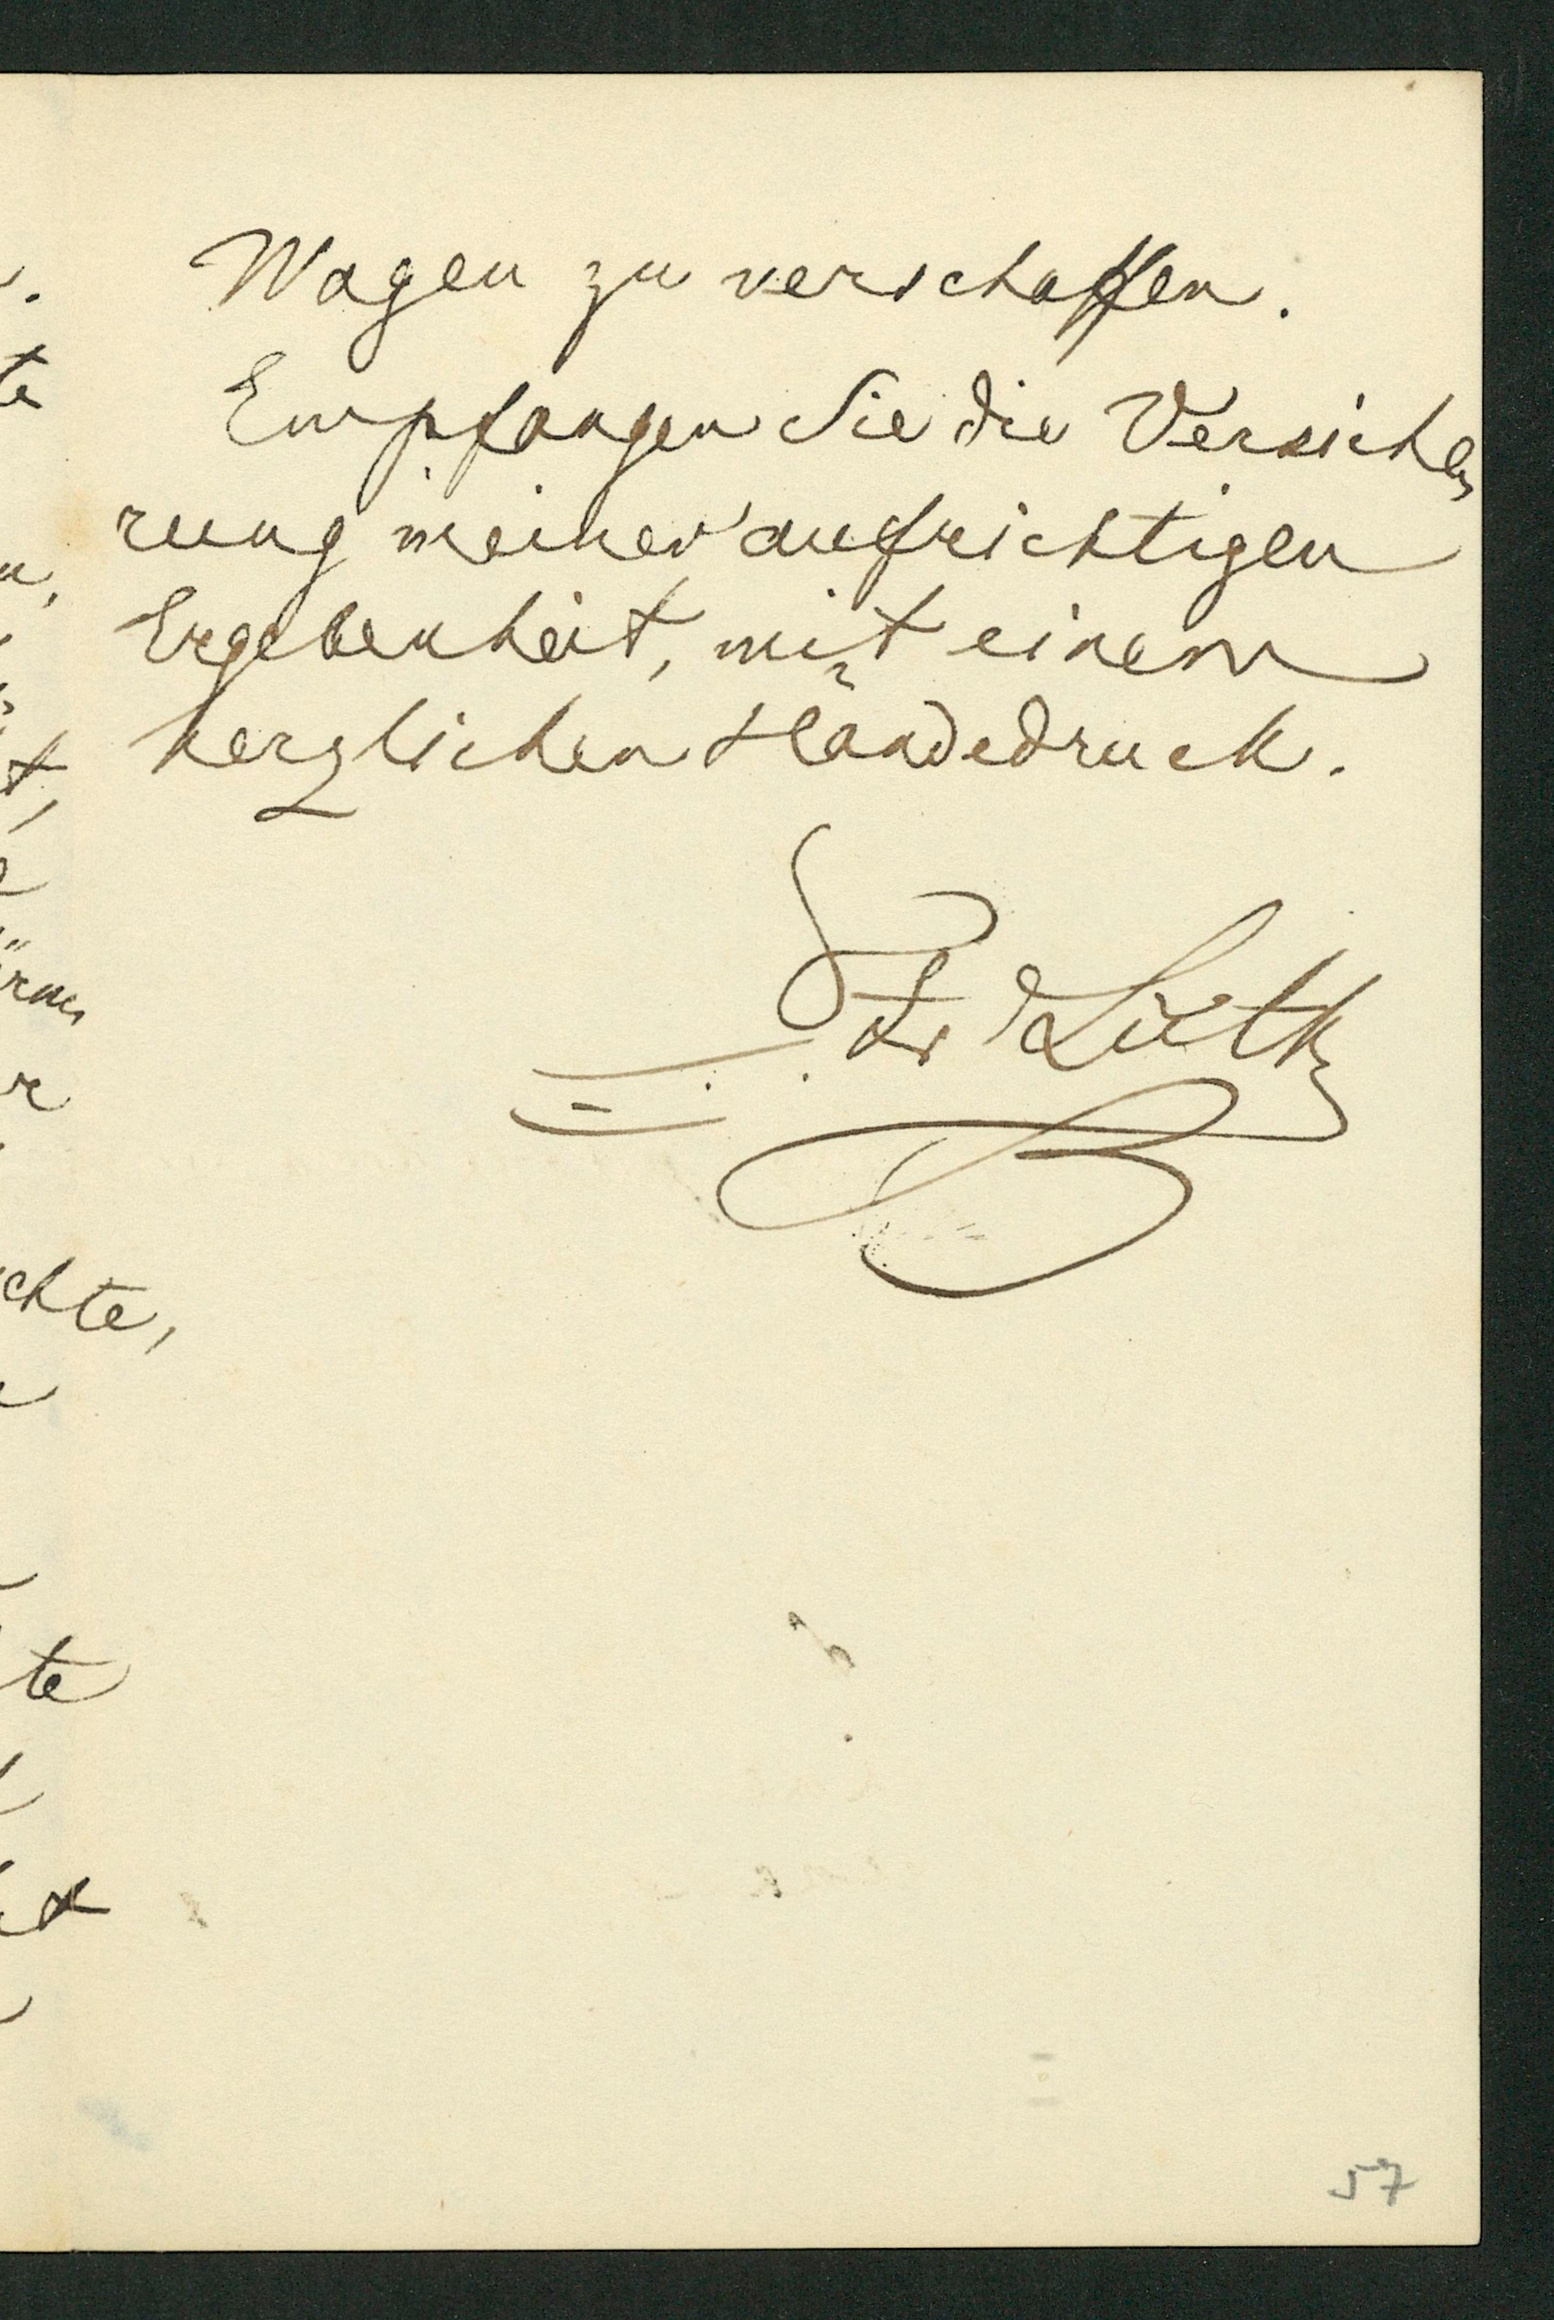 Wagen zu verschaffen.
Empfangen Sie die Versiche
rung meiner aufrichtigen
Ergebenheit, mit einem
herzlichen Händedruck.
57
te
chte,
te